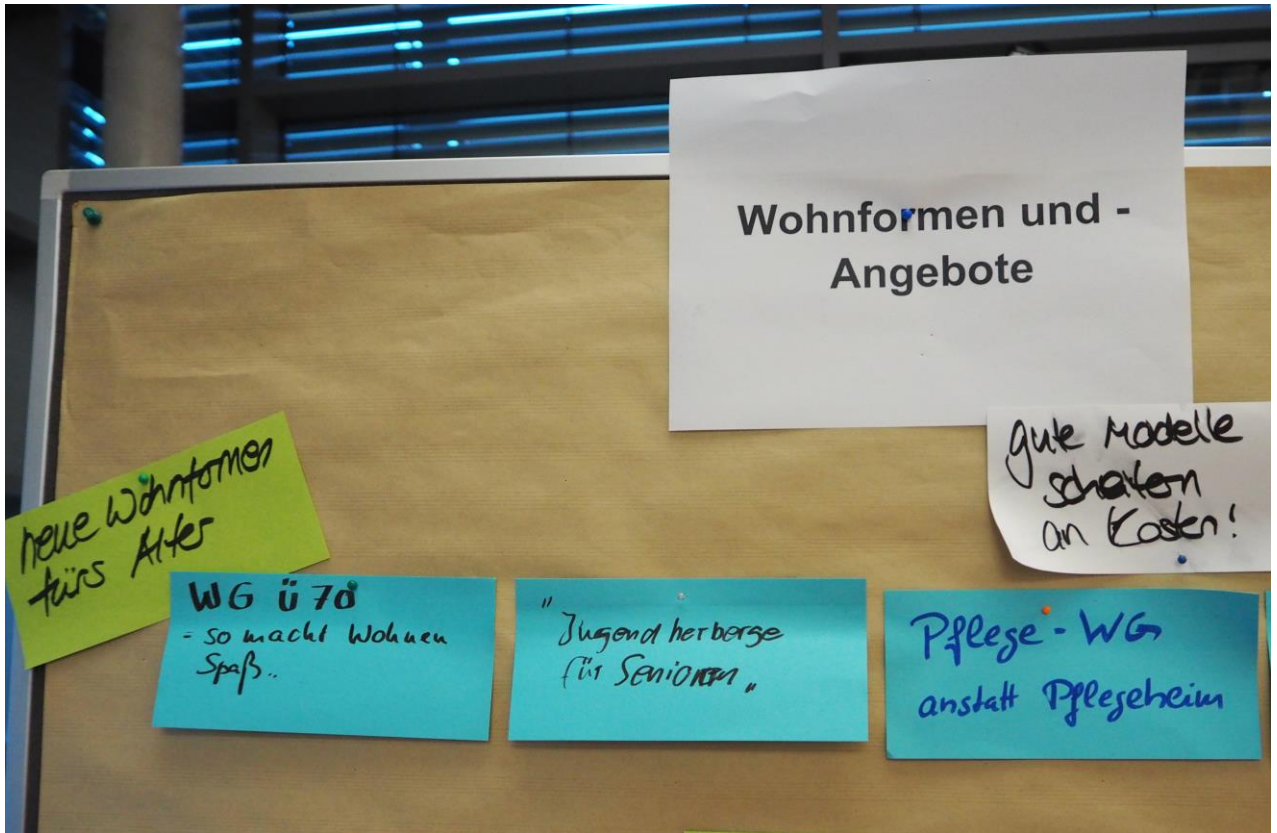 Wohnformen und -
Angebote
gute Modelle
scheitern
an Kosten!
neue Wohnformen
fürs Alter
WG Ü 70
- so macht Wohnen
Spaß..
"Jugendherberge
für Senioren"
Pflege-WG
anstatt Pflegeheim